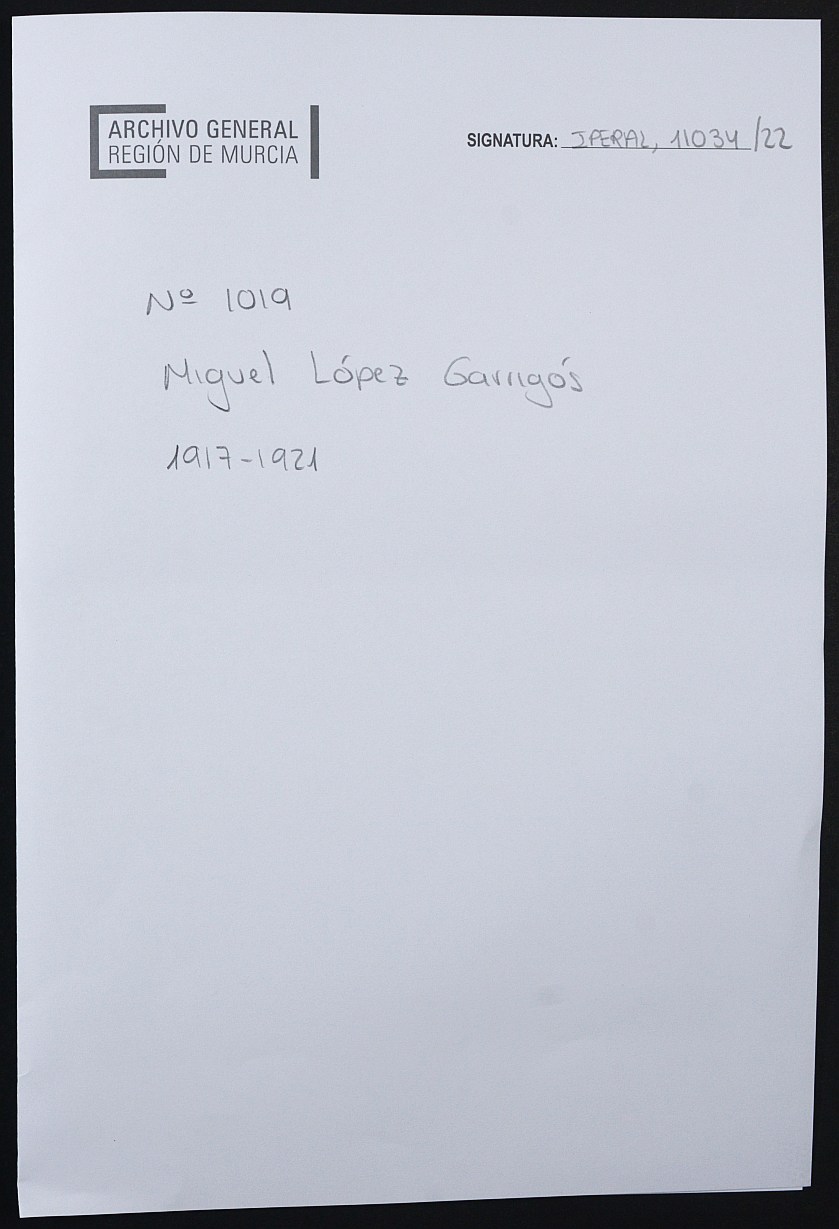 ARCHIVO GENERAL
REGIÓN DE MURCIA
SIGNATURA: IPERAL, 11034 /22
Nº 1019
Miguel López Garrigós
1917-1921